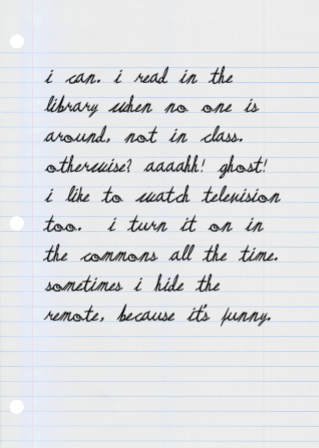 i can. i read in the
library when no one is
around, not in class.
otherwise? aaaahh! ghost!
i like to watch television
too. i turn it on in
the commons all the time.
sometimes i hide the
remote, because it's funny.